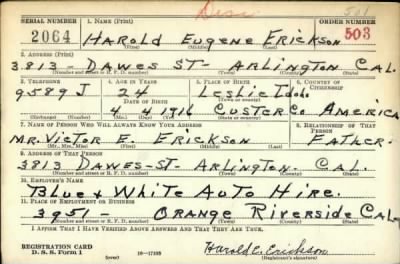 Disc 501
SERIAL NUMBER 1. NAME (Print) ORDER NUMBER
2064 HAROLD EUGENE ERICKSON 503
(First) (Middle) (Last)
2. ADDRESS (Print)
3813 - DAWES ST - ARLINGTON CAL.
(Number and street or R. F. D. number) (Town) (County) (State)
3. TELEPHONE 4. AGE IN YEARS 5. PLACE OF BIRTH 6. COUNTRY OF CITIZENSHIP
9589 J 24 Leslie Idaho
DATE OF BIRTH (Town or county)
4 4 1916 CUSTER CO AMERICA
(Exchange) (Number) (Mo.) (Day) (Yr.) (State or country)
7. NAME OF PERSON WHO WILL ALWAYS KNOW YOUR ADDRESS 8. RELATIONSHIP OF THAT PERSON
MR. VICTOR E. ERICKSON FATHER.
(Mr., Mrs., Miss) (First) (Middle) (Last)
9. ADDRESS OF THAT PERSON
3813 DAWES-ST- ARLINGTON. CAL.
(Number and street or R. F. D. number) (Town) (County) (State)
10. EMPLOYER'S NAME
BLUE & WHITE AUTO HIRE.
11. PLACE OF EMPLOYMENT OR BUSINESS
3951 - ORANGE RIVERSIDE CAL
(Number and street or R. F. D. number) (Town) (County) (State)
I AFFIRM THAT I HAVE VERIFIED ABOVE ANSWERS AND THAT THEY ARE TRUE.
REGISTRATION CARD
D. S. S. Form 1 (over) 16-17105 Harold E. Erickson
(Registrant's signature)